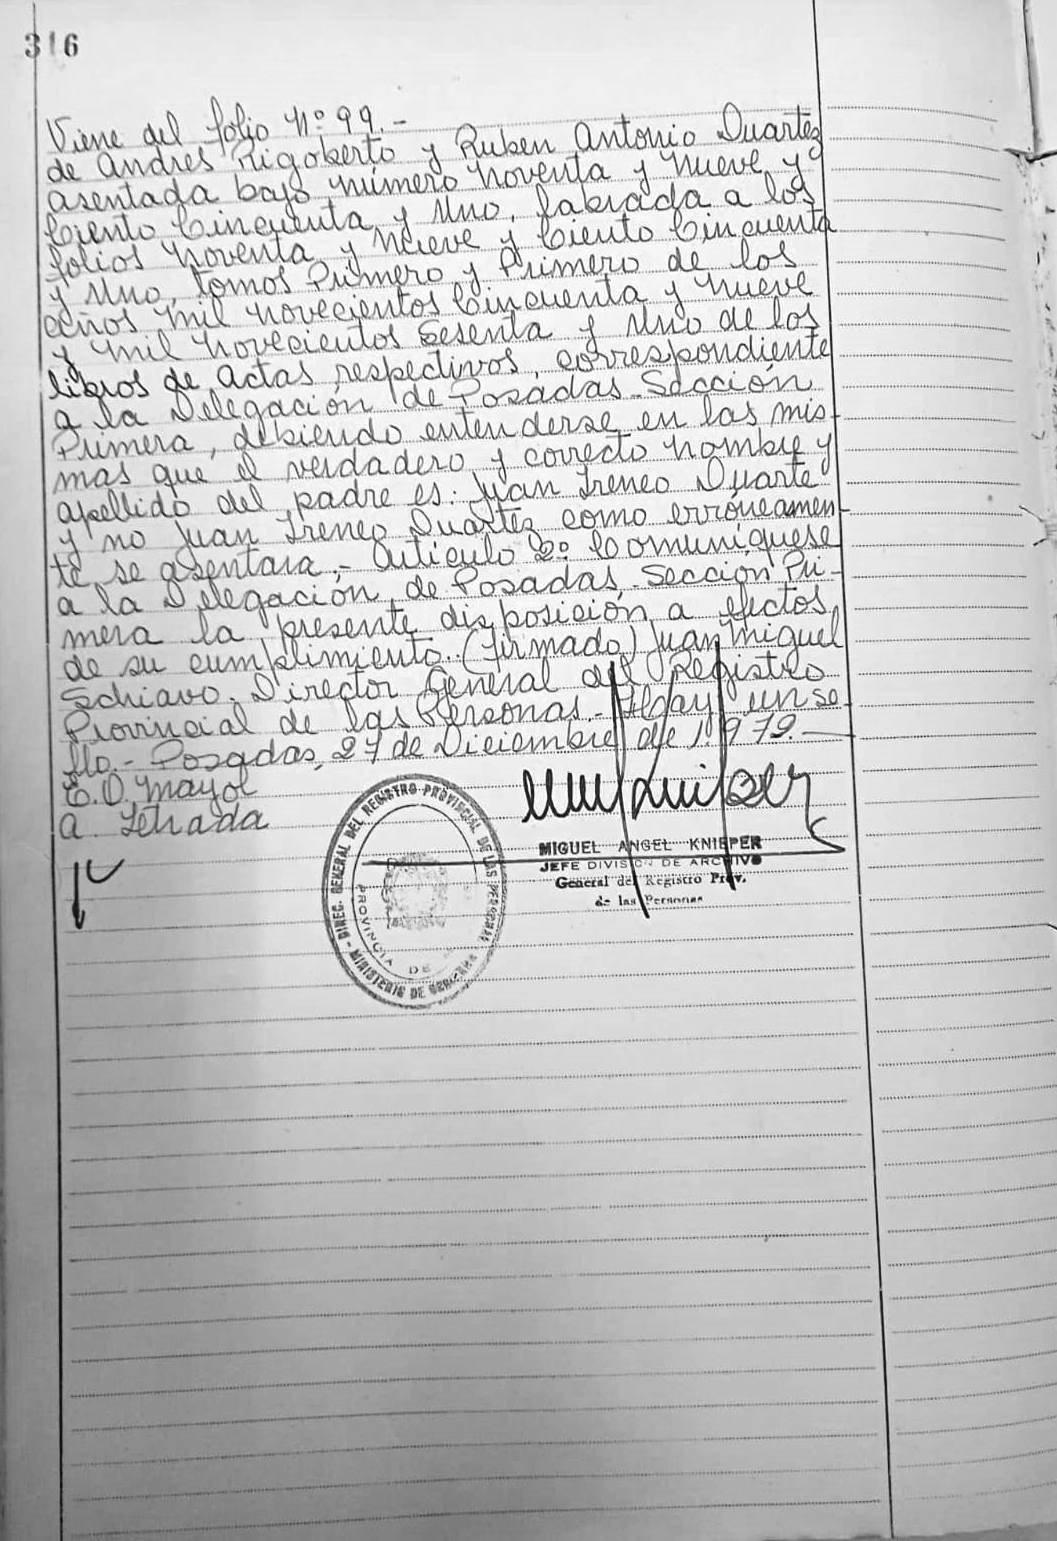 316
Viene del folio N° 99.-
de Andres Rigoberto y Ruben Antonio Duartez
asentada bajo número noventa y nueve y
Ciento Cincuenta y Uno, labrada a los
folios noventa y nueve y Ciento Cincuenta
y Uno, tomos Primero y Primero de los
años mil novecientos Cincuenta y nueve
y mil novecientos Sesenta y Uno de los
libros de actas respectivos, correspondiente
a la Delegación de Posadas Sección
Primera, debiendo entenderse en las mis-
mas que el verdadero y correcto nombre y
apellido del padre es: Juan Ireneo Duarte
y no Juan Ireneo Duartez como erróneamen-
te se asentara.- Artículo 2° Comuníquese
a la Delegación de Posadas, Sección Pri-
mera la presente disposición a efectos
de su cumplimiento. (Firmado) Juan Miguel
Schiavo. Director General del Registro
Provincial de las Personas.- Hay un se-
llo.- Posadas, 27 de Diciembre de 1.979.-
E.D. Mayol
a. Letrada
DIREC. GENERAL DEL REGISTRO PROVINCIAL DE LAS PERSONAS
- MINISTERIO DE GOBIERNO
PROVINCIA DE
MIGUEL ANGEL KNIEPER
JEFE DIVISION DE ARCHIVO
General del Registro Prov.
de las Personas